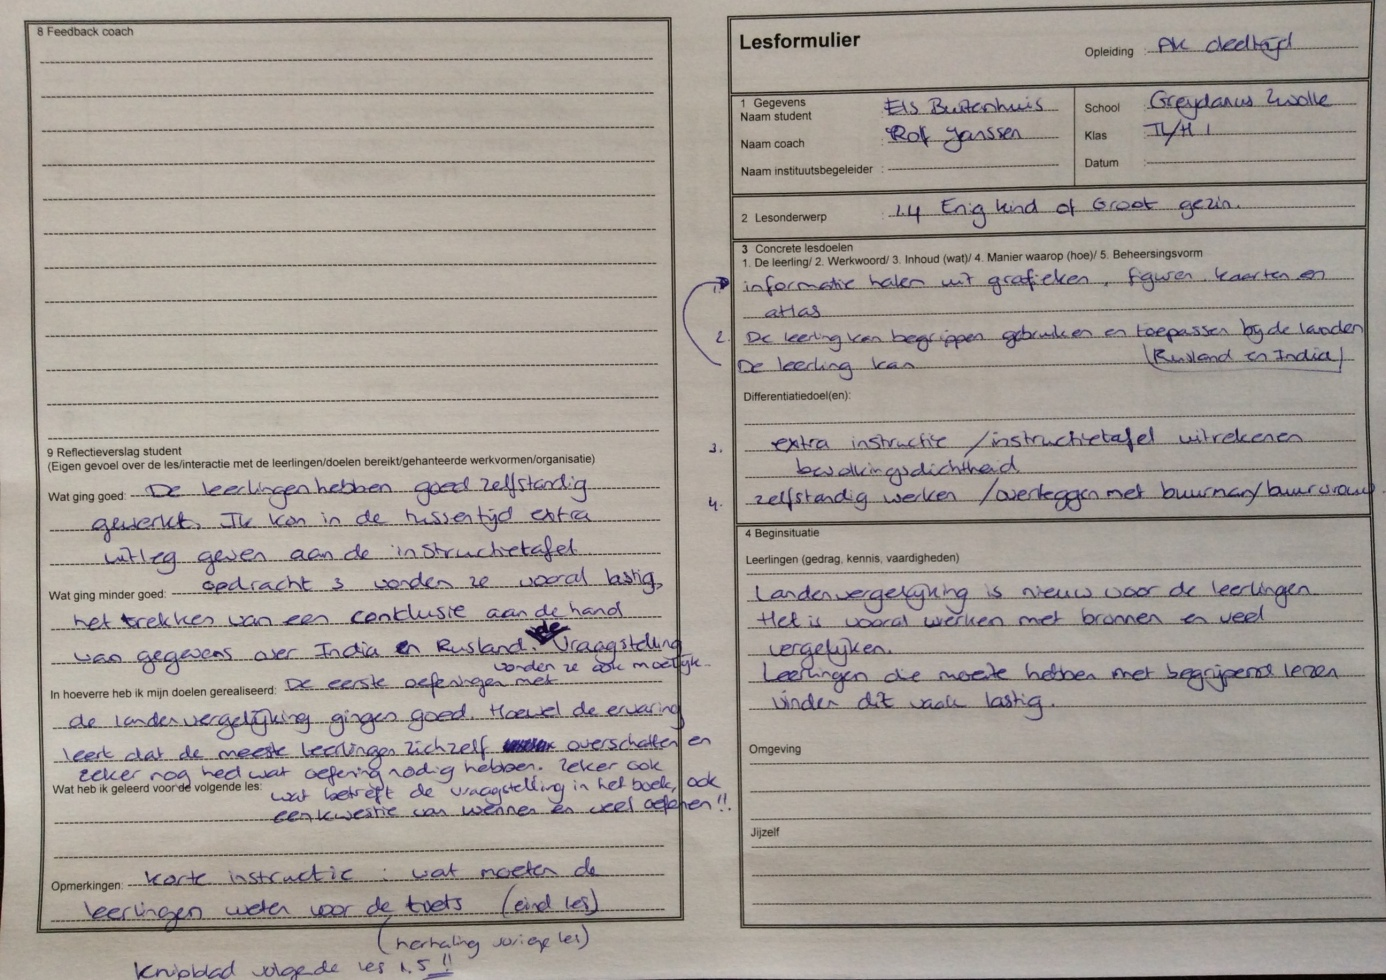 8 Feedback coach
9 Reflectieverslag student
(Eigen gevoel over de les/interactie met de leerlingen/doelen bereikt/gehanteerde werkvormen/organisatie)
Wat ging goed: De leerlingen hebben goed zelfstandig
gewerkt. Ik kon in de tussentijd extra
uitleg geven aan de instructietafel
Wat ging minder goed: opdracht 3 vonden ze vooral lastig,
het trekken van een conclusie aan de hand
van gegevens over India en Rusland. de Vraagstelling
vonden ze ook moeilijk.
In hoeverre heb ik mijn doelen gerealiseerd: De eerste oefeningen met
de landenvergelijking gingen goed. Hoewel de ervaring
leert dat de meeste leerlingen zichzelf overschatten en
zeker nog heel wat oefening nodig hebben. Zeker ook
Wat heb ik geleerd voor de volgende les: wat betreft de vraagstelling in het boek, ook
een kwestie van wennen en veel oefenen!!
Opmerkingen: Korte instructie: wat moeten de
leerlingen weten voor de toets (eind les)
(herhaling vorige les)
Knipblad volgende les 1.5!!
Lesformulier
Opleiding : AK deeltijd
1 Gegevens
Naam student Els Buitenhuis
School Greydanus Zwolle
Naam coach : Rolf Janssen
Klas TL/H 1
Naam instituutsbegeleider :
Datum :
2 Lesonderwerp : 1.4 Enig kind of Groot gezin.
3 Concrete lesdoelen
1. De leerling/ 2. Werkwoord/ 3. Inhoud (wat)/ 4. Manier waarop (hoe)/ 5. Beheersingsvorm
1. informatie halen uit grafieken, figuren, kaarten en
atlas
2. De leerling kan begrippen gebruiken en toepassen bij de landen
De leerling kan (Rusland en India)
Differentiatiedoel(en):
3. extra instructie / instructietafel uitrekenen
bevolkingsdichtheid
4. zelfstandig werken / overleggen met buurman/buurvrouw.
4 Beginsituatie
Leerlingen (gedrag, kennis, vaardigheden)
Landenvergelijking is nieuw voor de leerlingen.
Het is vooral werken met bronnen en veel
vergelijken.
Leerlingen die moeite hebben met begrijpend lezen
vinden dit vaak lastig.
Omgeving
Jijzelf